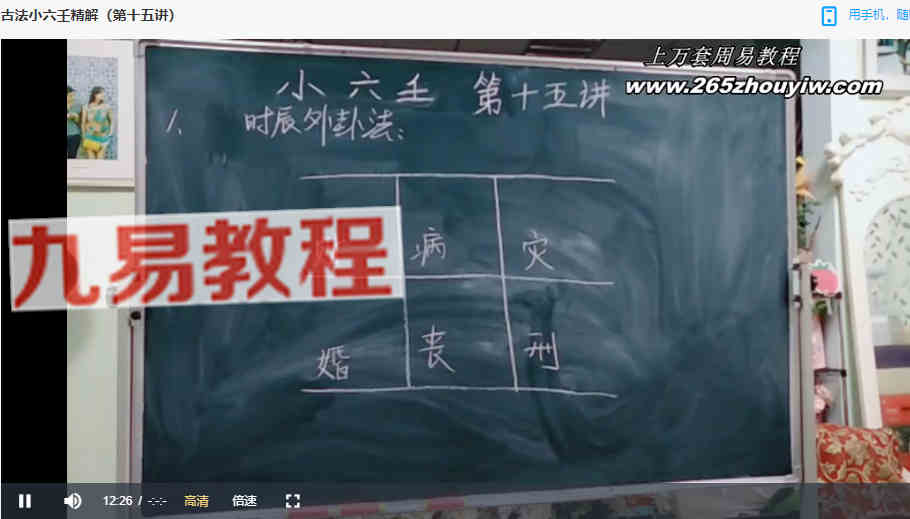 古法小六壬精解（第十五讲）
用手机，随
上万套周易教程
www.265zhouyiw.com
小六壬 第十五讲
1、时辰外卦法：
九易教程
病 灾
婚 丧 刑
12:26 / -:-
高清
倍速